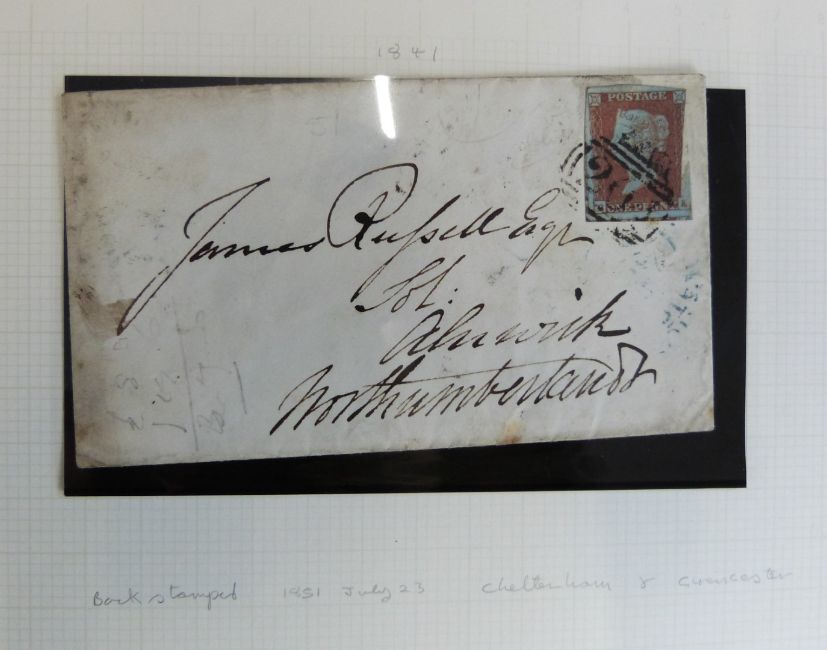 1841
POSTAGE
ONE PENNY
James Russell Esqr
Sol:
Alnwick
Northumberland
Back stamped 1851 July 23 Cheltenham & Gloucester